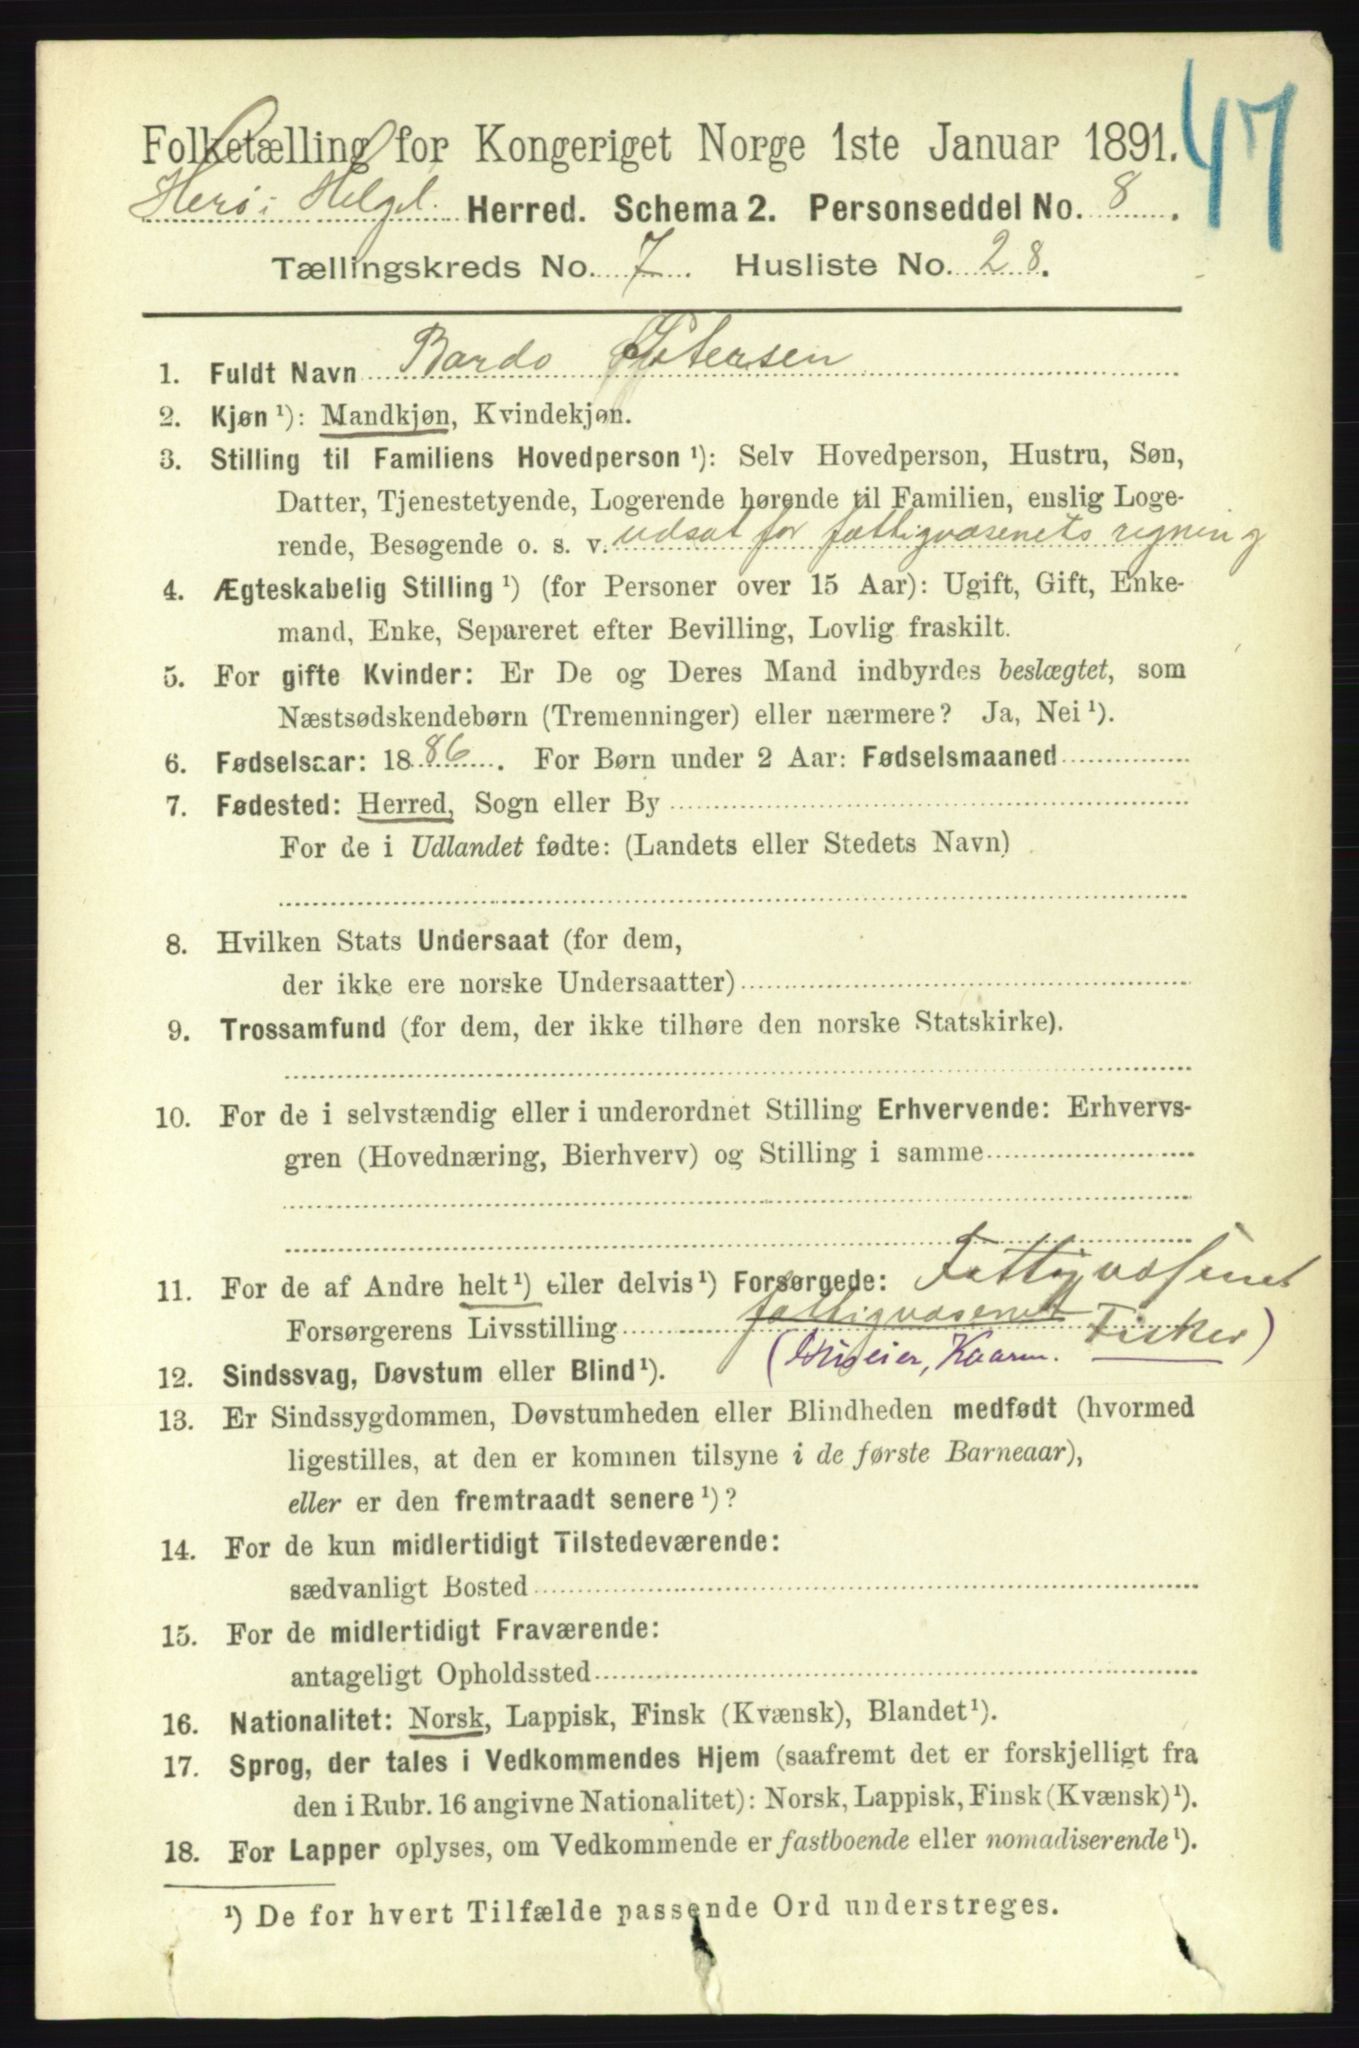 47
Folketælling for Kongeriget Norge 1ste Januar 1891.
Herø i Helgel. Herred. Schema 2. Personseddel No. 8.
Tællingskreds No. 7. Husliste No. 28.
1. Fuldt Navn Bardo Petersen
2. Kjøn ¹): Mandkjøn, Kvindekjøn.
3. Stilling til Familiens Hovedperson ¹): Selv Hovedperson, Hustru, Søn,
Datter, Tjenestetyende, Logerende hørende til Familien, enslig Loge-
rende, Besøgende o. s. v. udsat for fattigvæsenets regning
4. Ægteskabelig Stilling ¹) (for Personer over 15 Aar): Ugift, Gift, Enke-
mand, Enke, Separeret efter Bevilling, Lovlig fraskilt.
5. For gifte Kvinder: Er De og Deres Mand indbyrdes beslægtet, som
Næstsødskendebørn (Tremenninger) eller nærmere? Ja, Nei ¹).
6. Fødselsaar: 1886. For Børn under 2 Aar: Fødselsmaaned
7. Fødested: Herred, Sogn eller By
For de i Udlandet fødte: (Landets eller Stedets Navn)
8. Hvilken Stats Undersaat (for dem,
der ikke ere norske Undersaatter)
9. Trossamfund (for dem, der ikke tilhøre den norske Statskirke).
10. For de i selvstændig eller i underordnet Stilling Erhvervende: Erhvervs-
gren (Hovednæring, Bierhverv) og Stilling i samme
11. For de af Andre helt ¹) eller delvis ¹) Forsørgede: Fattigvæsenet
Forsørgerens Livsstilling fattigvæsenet Fisker)
(Huseier, Kaarm.
12. Sindssvag, Døvstum eller Blind ¹).
13. Er Sindssygdommen, Døvstumheden eller Blindheden medfødt (hvormed
ligestilles, at den er kommen tilsyne i de første Barneaar),
eller er den fremtraadt senere ¹)?
14. For de kun midlertidigt Tilstedeværende:
sædvanligt Bosted
15. For de midlertidigt Fraværende:
antageligt Opholdssted
16. Nationalitet: Norsk, Lappisk, Finsk (Kvænsk), Blandet ¹).
17. Sprog, der tales i Vedkommendes Hjem (saafremt det er forskjelligt fra
den i Rubr. 16 angivne Nationalitet): Norsk, Lappisk, Finsk (Kvænsk) ¹).
18. For Lapper oplyses, om Vedkommende er fastboende eller nomadiserende ¹).
¹) De for hvert Tilfælde passende Ord understreges.